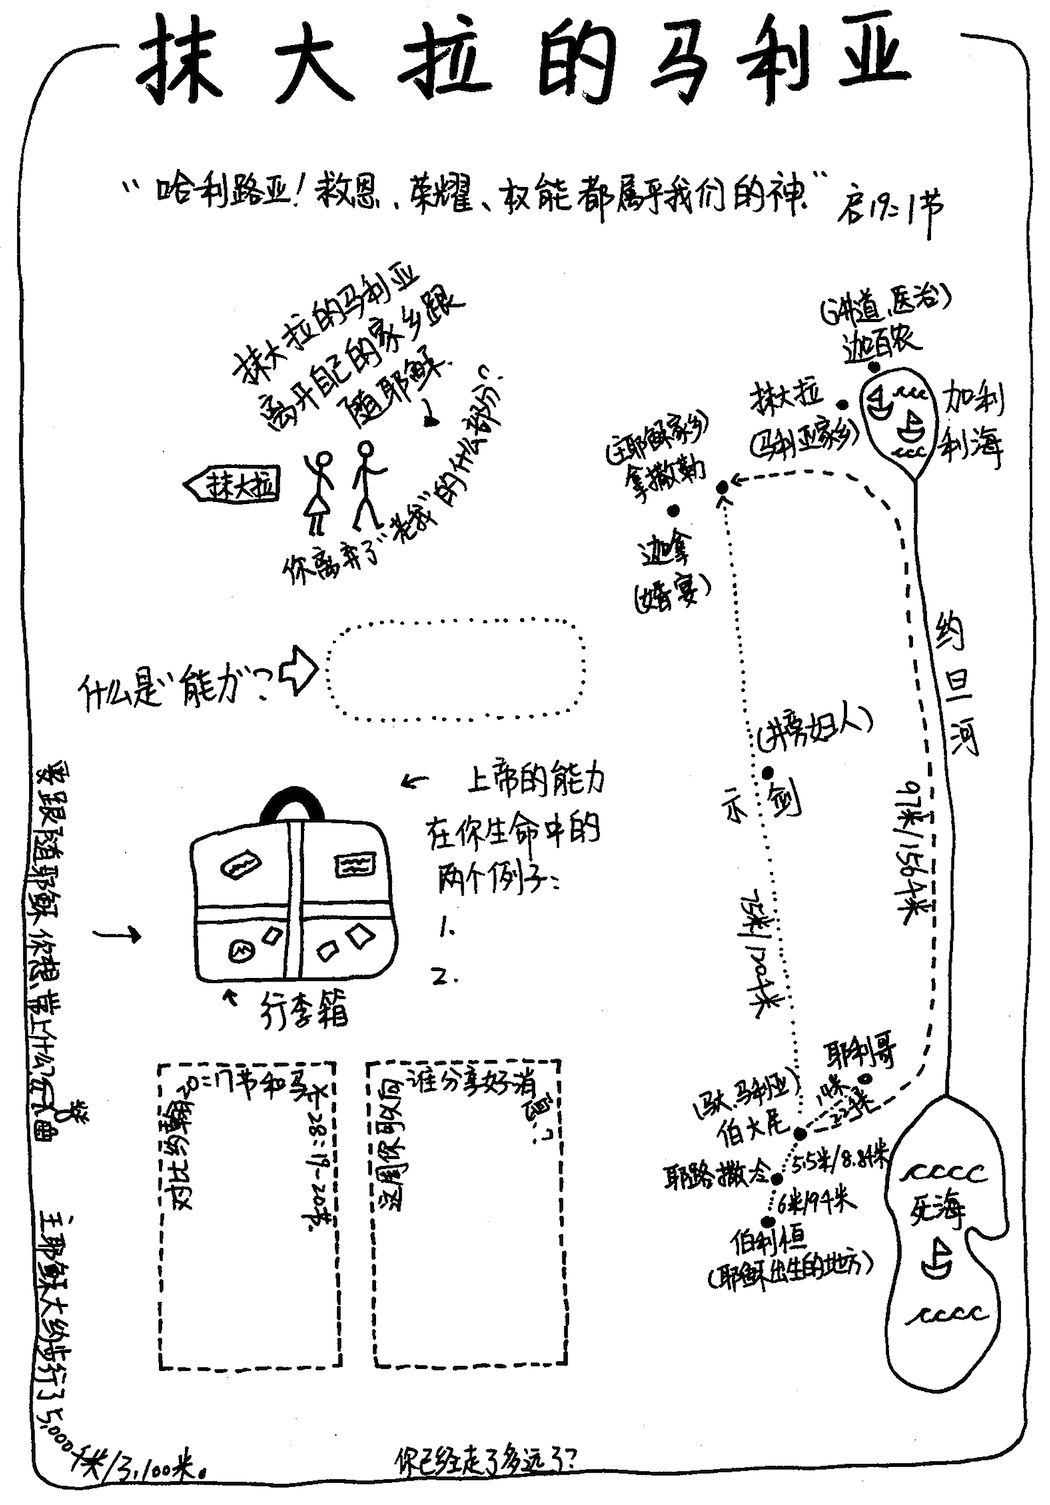 抹大拉的马利亚
“哈利路亚！救恩、荣耀、权能都属乎我们的神.” 启19:1节
抹大拉的马利亚
离开自己的家乡跟
随耶稣.
抹大拉
你离弃了“老我”的什么部分?
什么是“能力”?
← 上帝的能力
在你生命中的
两个例子:
1.
2.
行李箱
要跟随耶稣你想带上什么
主耶稣大约步行了5,000千米/3,100米。
对比约翰20:17节和马太28:19-20节.
这周你可以向谁分享好消息?
你已经走了多远了?
(讲道、医治)
迦百农
抹大拉
(马利亚家乡)
加利
利海
(主耶稣家乡)
拿撒勒
迦拿
(婚宴)
约旦河
(井旁妇人)
示剑
97米/156千米
75米/120千米
耶利哥
22千米
(马大、马利亚)
伯大尼
耶路撒冷
5.5米/8.84米
6米/94米
伯利恒
(耶稣出生的地方)
死海